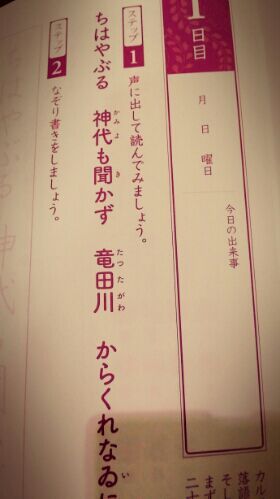 1日目
月 日 曜日
今日の出来事
ステップ1 声に出して読んでみましょう。
ちはやぶる 神代も聞かず 竜田川 からくれなゐに
かみよ き たつたがわ い
ステップ2 なぞり書きをしましょう。
カル
落語
そし
まず
二十